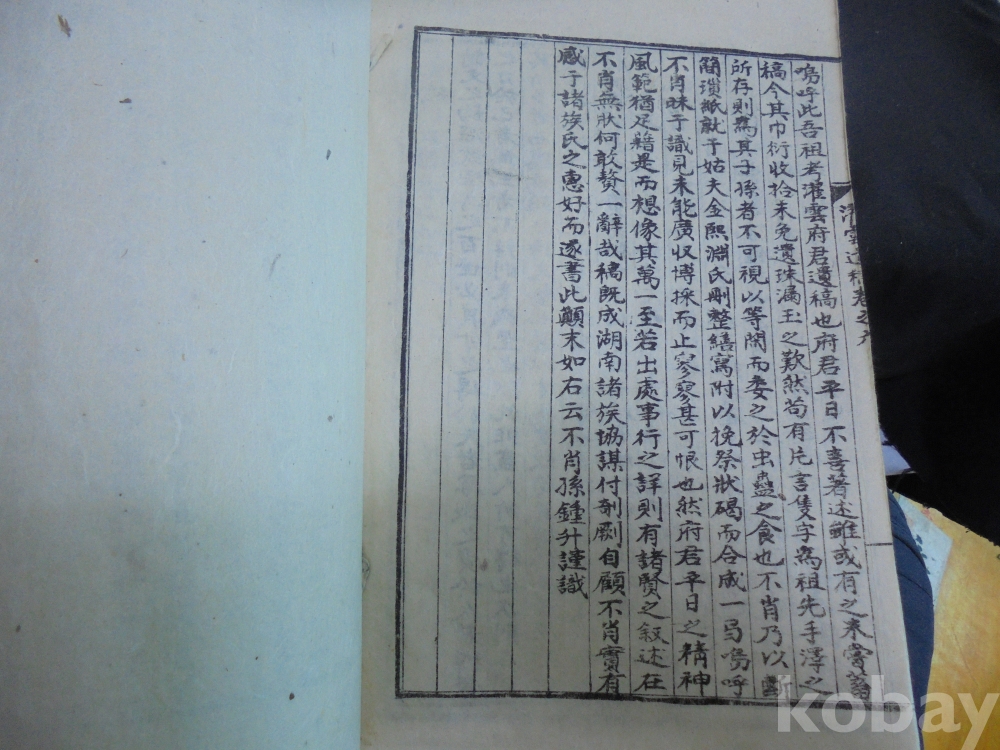 嗚呼此吾祖考灌雲府君遺稿也府君平日不喜著述雖或有之未嘗蓄
稿今其巾衍收拾未免遺珠漏玉之歎然苟有片言隻字爲祖先手澤之
所存則爲其子孫者不可視以等閑而委之於虫蠹之食也不肖乃以斷
簡瑣紙就于姑夫金熙淵氏刪整繕寫附以挽祭狀碣而合成一局嗚呼
不肖昧于識見未能廣収博採而止寥寥甚可恨也然府君平日之精神
風範猶足藉是而想像其萬一至若出處事行之詳則有諸賢之叙述在
不肖無狀何敢贅一辭哉稿既成湖南諸族協謀付剞劂自顧不肖實有
感于諸族氏之惠好而遂書此顚末如右云不肖孫鍾升謹識
kobay